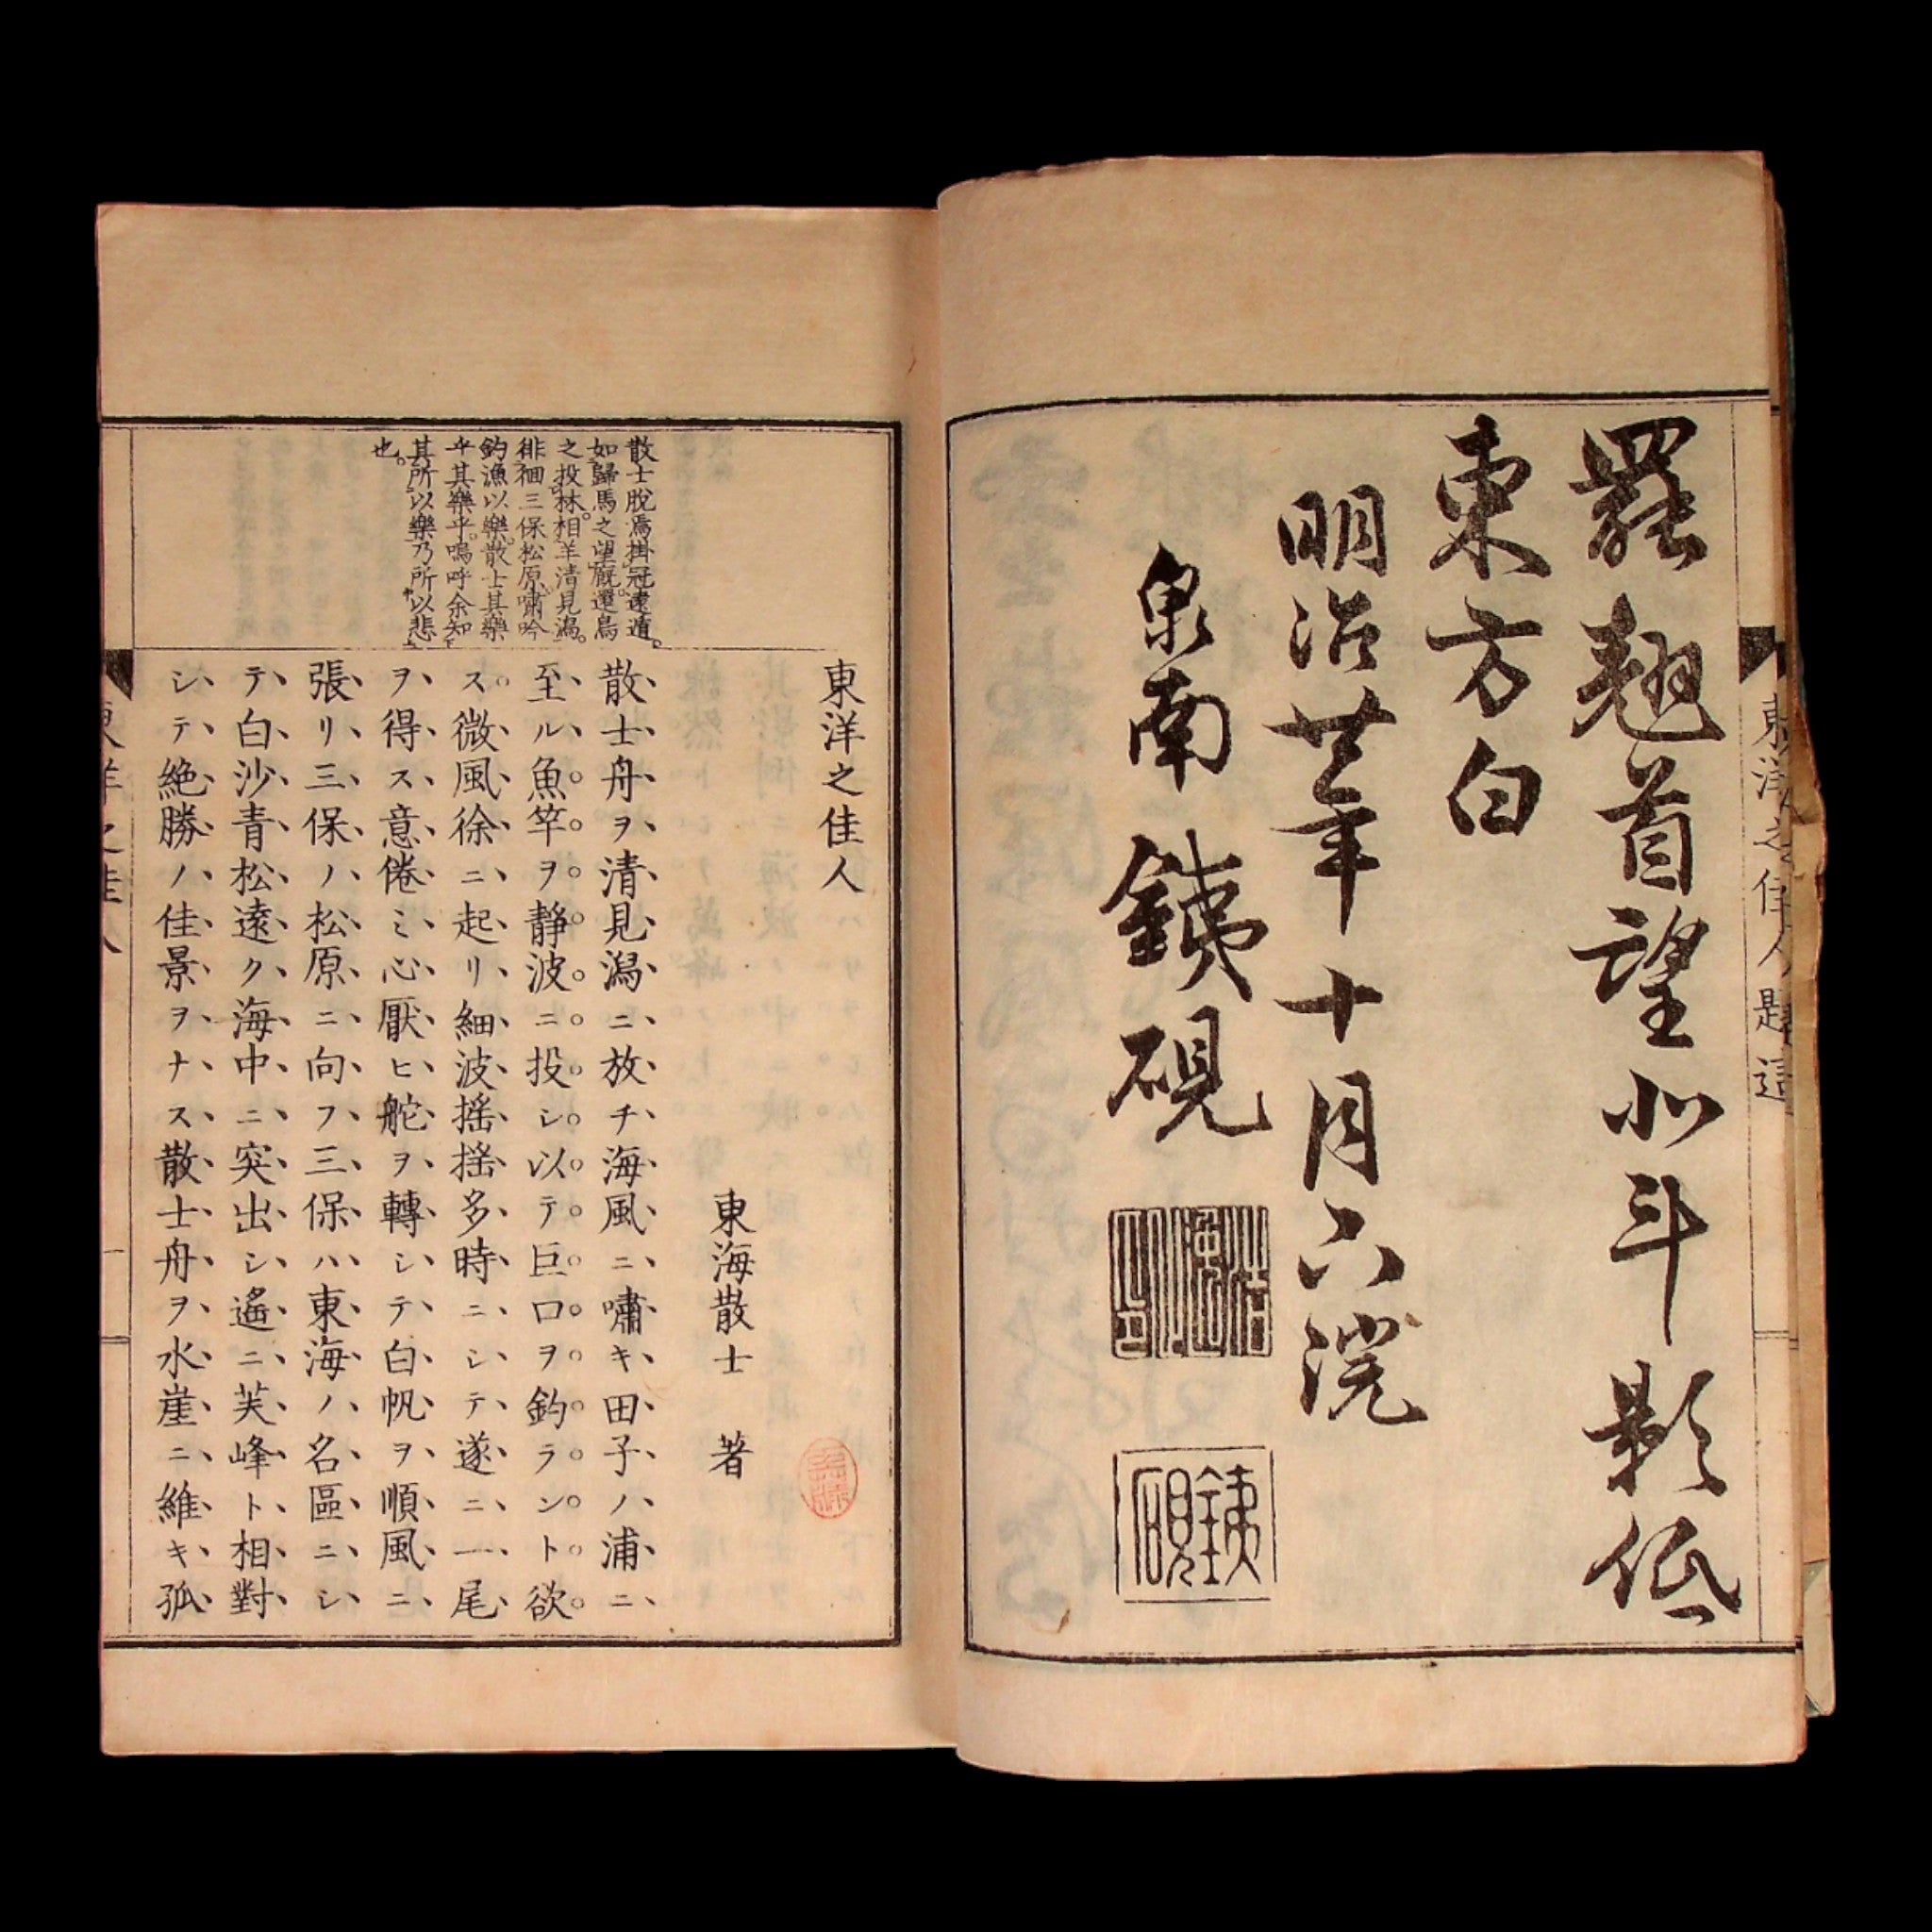 罷翹首望北斗影低
東方白
明治廿年十月六渡
泉南 銕硯
銕硯
東洋之佳人
東海散士 著
散士脫焉掛冠遠遁。
如歸馬之望厩。還鳥
之投林。相羊清見潟。
徘徊三保松原。嘯吟
釣漁以樂。散士其樂
乎其樂乎。嗚呼余知
其所以樂乃所以悲
也。
散士舟ヲ清見潟ニ放チ海風ニ嘯キ田子ノ浦ニ
至ル魚竿ヲ静波ニ投シ以テ巨口ヲ釣ラント欲
ス微風徐ニ起リ細波搖搖多時ニシテ遂ニ一尾
ヲ得ス意倦ミ心厭ヒ舵ヲ轉シテ白帆ヲ順風ニ
張リ三保ノ松原ニ向フ三保ハ東海ノ名區ニシ
テ白沙青松遠ク海中ニ突出シ遙ニ芙峰ト相對
シテ絶勝ノ佳景ヲナス散士舟ヲ水崖ニ維キ孤